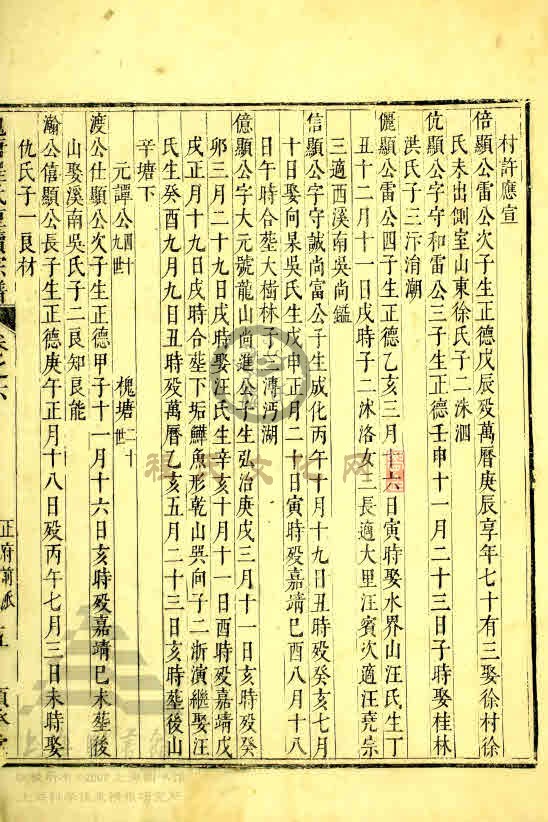 村許應宣
倍顯公雷公次子生正德戊辰殁萬曆庚辰享年七十有三娶徐村徐
氏未出側室山東徐氏子二洙泗
伉顯公字守和雷公三子生正德壬申十一月二十三日子時娶桂林
洪氏子三汴淯湖
儷顯公雷公四子生正德乙亥三月十六日寅時娶水界山汪氏生丁
丑十二月十一日戌時子二沭洛女三長適大里汪賓次適汪堯宗
三適西溪南吳尚鑑
信顯公字守誠尚富公子生成化丙午十月十九日丑時殁癸亥七月
十日娶向杲吳氏生戊申正月二十日寅時殁嘉靖己酉八月十八
日午時合塟大樹林子三漙沔湖
億顯公字大元號龍山尚進公子生弘治庚戌三月十一日亥時殁癸
卯三月二十九日戌時娶汪氏生辛亥十月十一日酉時殁嘉靖戊
戌正月十九日戌時合塟下垢鱓魚形乾山巽向子二浙演繼娶汪
氏生癸酉九月九日丑時殁萬曆乙亥五月二十三日亥時塟後山
辛塘下
元譚公四十九世 槐塘二十世
渡公仕顯公次子生正德甲子十一月十六日亥時殁嘉靖己未塟後
山娶溪南吳氏子二良知良能
瀚公僖顯公長子生正德庚午正月十八日殁丙午七月三日未時娶
仇氏子一良材
卷之六
正府前派
五
程氏文化网